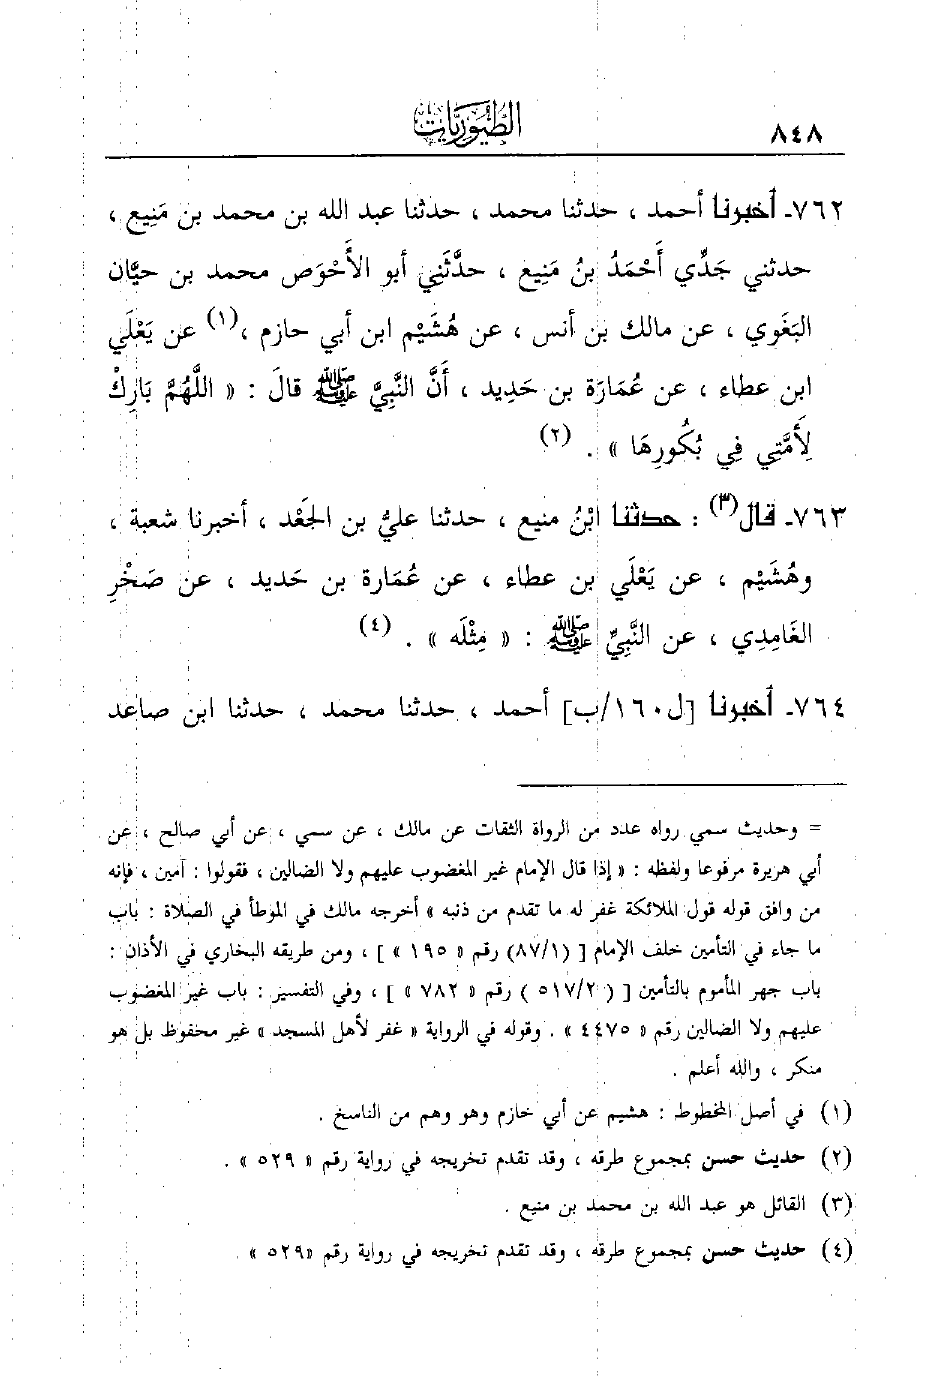 ٨٤٨
الطيوريات
٧٦٢- أخبرنا أحمد ، حدثنا محمد ، حدثنا عبد الله بن محمد بن مَنِيع ،
حدثني جَدِّي أَحْمَدُ بنُ مَنِيع ، حدَّثَنِي أبو الأَحْوَص محمد بن حيَّان
البَغَوي ، عن مالك بن أنس ، عن هُشَيْم ابن أبي حازم ،(١) عن يَعْلَي
ابن عطاء ، عن عُمَارَة بن حَدِيد ، أَنَّ النَّبِيَّ ﷺ قالَ : « اللَّهُمَّ بَارِكْ
لِأُمَّتِي فِي بُكُورِهَا » . (٢)
٧٦٣- قال(٣) : حدثنا ابْنُ منيع ، حدثنا عليُّ بن الجَعْد ، أخبرنا شعبة ،
وهُشَيْم ، عن يَعْلَي بن عطاء ، عن عُمَارة بن حَديد ، عن صَخْرِ
الغَامِدِي ، عن النَّبِيِّ ﷺ : « مِثْلَه » . (٤)
٧٦٤- أخبرنا [ل١٦٠/ب] أحمد ، حدثنا محمد ، حدثنا ابن صاعد
= وحديث سمي رواه عدد من الرواة الثقات عن مالك ، عن سمي ، عن أبي صالح ، عن
أبي هريرة مرفوعا ولفظه : « إذا قال الإمام غير المغضوب عليهم ولا الضالين ، فقولوا : آمين ، فإنه
من وافق قوله قول الملائكة غفر له ما تقدم من ذنبه » أخرجه مالك في الموطأ في الصلاة : باب
ما جاء في التأمين خلف الإمام [ (٨٧/١) رقم « ١٩٥ » ] ، ومن طريقه البخاري في الأذان :
باب جهر المأموم بالتأمين [ ( ٥١٧/٢ ) رقم « ٧٨٢ » ] ، وفي التفسير : باب غير المغضوب
عليهم ولا الضالين رقم « ٤٤٧٥ » . وقوله في الرواية « غفر لأهل المسجد » غير محفوظ بل هو
منكر ، والله أعلم .
(١) في أصل المخطوط : هشيم عن أبي خازم وهو وهم من الناسخ .
(٢) حديث حسن بمجموع طرقه ، وقد تقدم تخريجه في رواية رقم « ٥٢٩ » .
(٣) القائل هو عبد الله بن محمد بن منيع .
(٤) حديث حسن بمجموع طرقه ، وقد تقدم تخريجه في رواية رقم «٥٢٩ » .